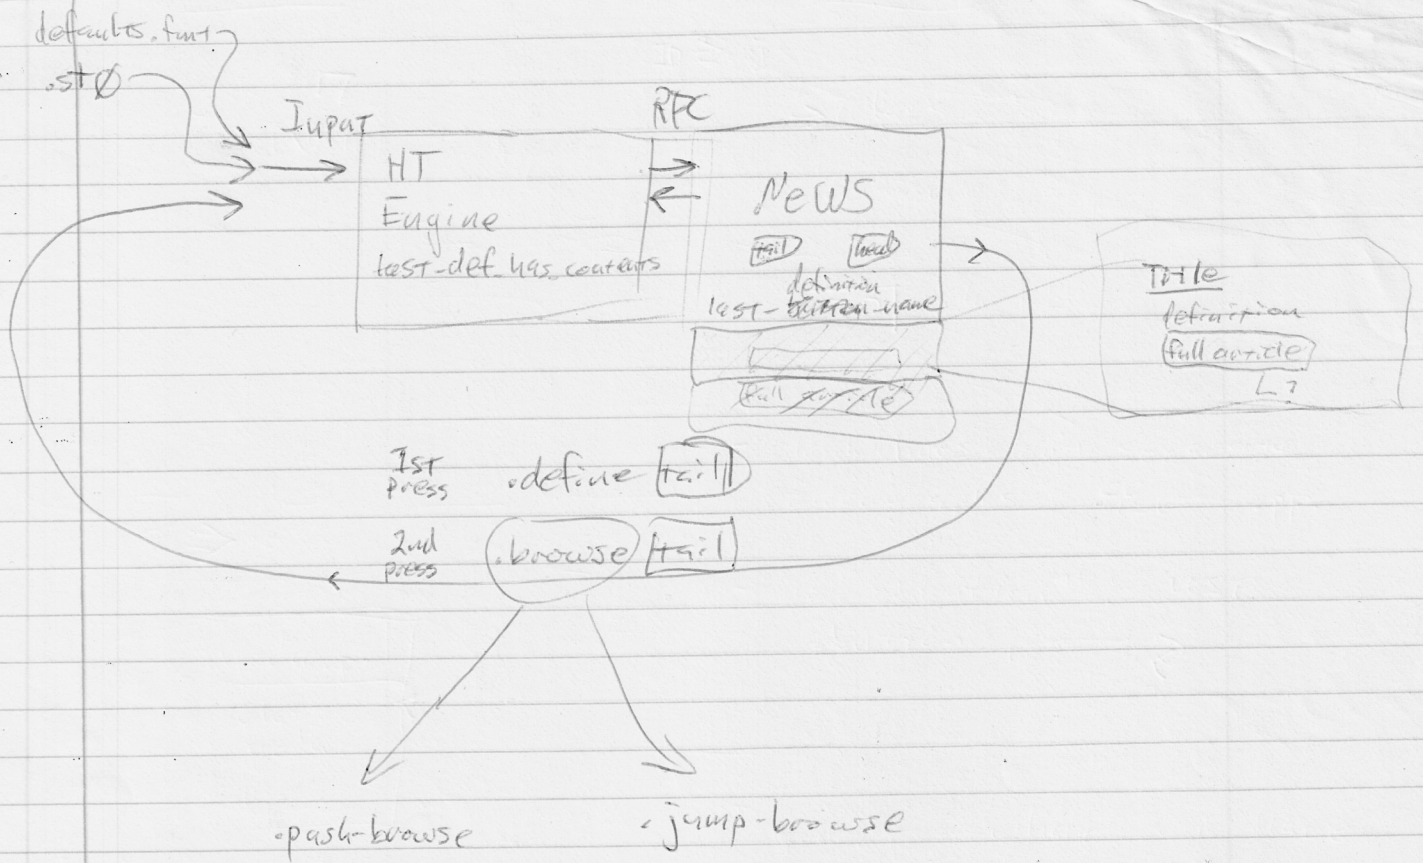 defaults.fmt
.stØ
Input
RPC
HT
Engine
last-def_has_contents
NeWS
tail
head
definition
last-button-name
Title
definition
full article
L?
full article
1st
press
.define tail
2nd
press
.browse tail
.push-browse
.jump-browse